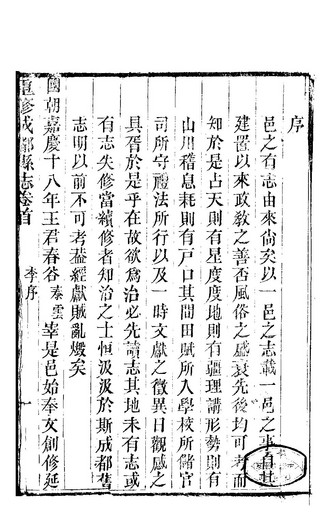 序
邑之有志由來尚矣以一邑之志載一邑之事自其
建置以來政教之善否風俗之盛衰先後均可考而
知於是占天則有星度度地則有疆理講形勢則有
山川稽息耗則有戶口其間田賦所入學校所儲官
司所守禮法所行以及一時文獻之徵異日觀感之
具胥於是乎在故欲為治必先讀志其地未有志或
有志失修當續修者知治之士恒汲汲於斯成都舊
志明以前不可考葢經獻賊亂燬矣
國朝嘉慶十八年王君春谷泰雲宰是邑始奉文創修延
重修成都縣志卷首
李序
一